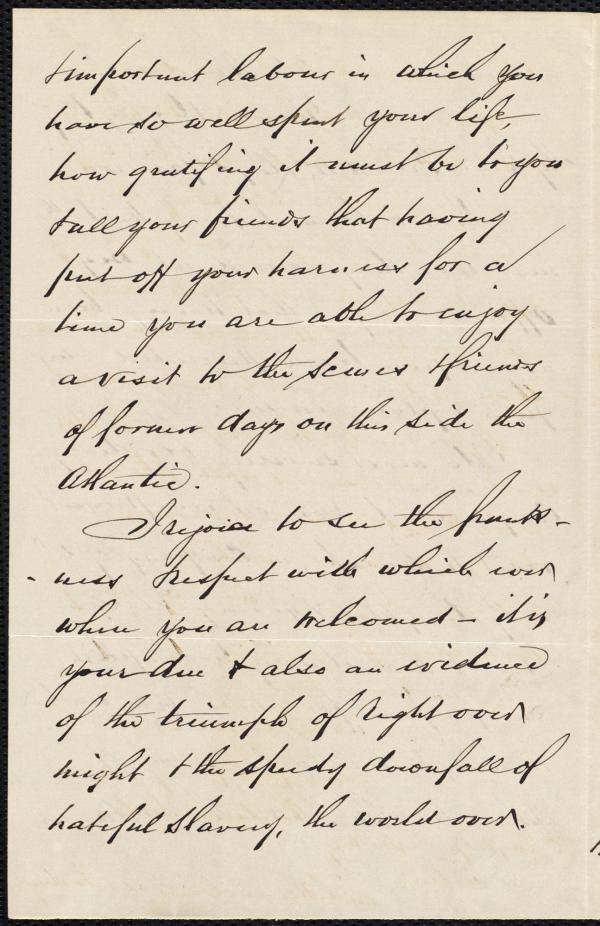 & important labour in which you
have so well spent your life,
how gratifing it must be to you
& all your friends that having
put off your harness for a
time you are able to enjoy
a visit to the scenes & friends
of former days on this side the
Atlantic.
I rejoice to see the frank-
-ness & respect with which
when you are welcomed - it is
your due & also an evidence
of the triumph of right over
might & the speedy downfall of
hateful slavery, the world over.